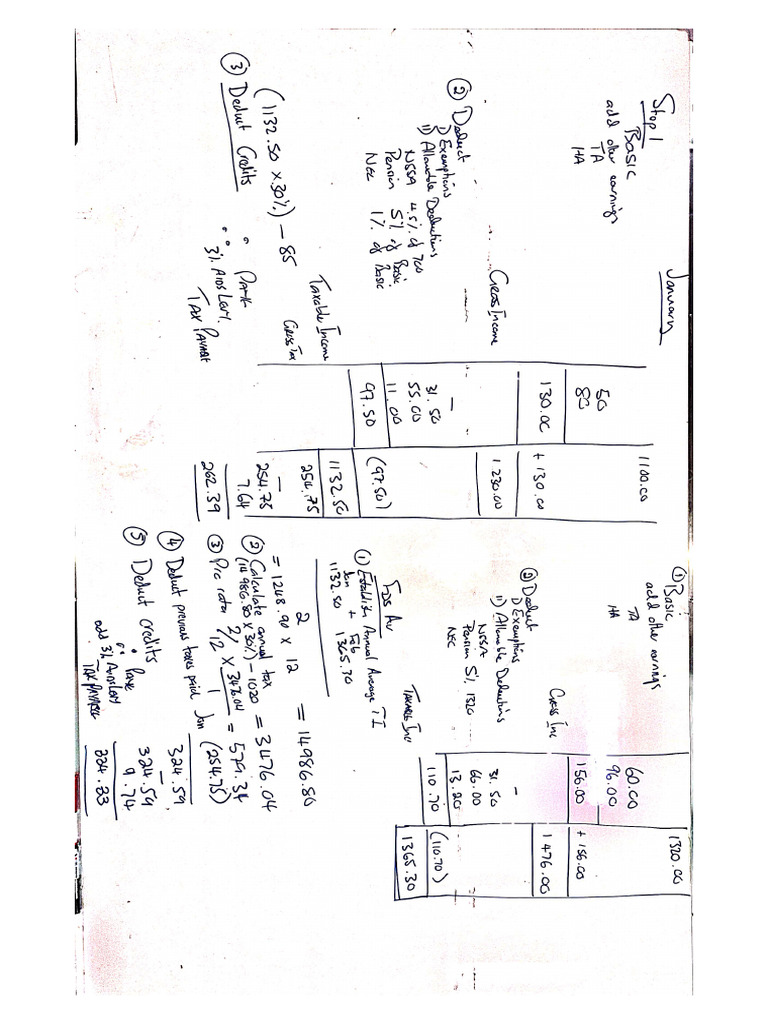 January
Step 1
BASIC 1100.00
add other earnings
TA 50
HA 80
130.00 + 130.00
Gross Income 1230.00
② Deduct
i) Exemptions –
ii) Allowable Deductions
NSSA 4.5% of 700 31.50
Pension 5% of Basic 55.00
NEC 1% of Basic 11.00
97.50 (97.50)
Taxable Income 1132.50
(1132.50 x 30%) – 85 Gross Tax 254.75
③ Deduct Credits –
∴ PAYE 254.75
∴ 3% AIDS Levy. 7.64
TAX PAYABLE 262.39
① Basic 1320.00
add other earnings
TA 60.00
HA 96.00
156.00 + 156.00
Gross Inc 1476.00
② Deduct
i) Exemptions –
ii) Allowable Deductions
NSSA 31.50
Pension 5% 1320 66.00
NEC 13.20
110.70 (110.70)
TAXABLE INC 1365.30
FDS Av
① Establish Annual Average T I
Jan + Feb
1132.50 1365.70
2
= 1248.90 x 12 = 14986.80
② Calculate annual tax
(14986.80 x 30%) – 1020 = 3476.04
③ Pro rata 2/12 x 3476.04/1 = 579.34
④ Deduct previous taxes paid Jan (254.75)
324.59
⑤ Deduct credits –
∴ Paye 324.59
add 3% Aids Levy 9.74
TAX PAYABLE 334.33